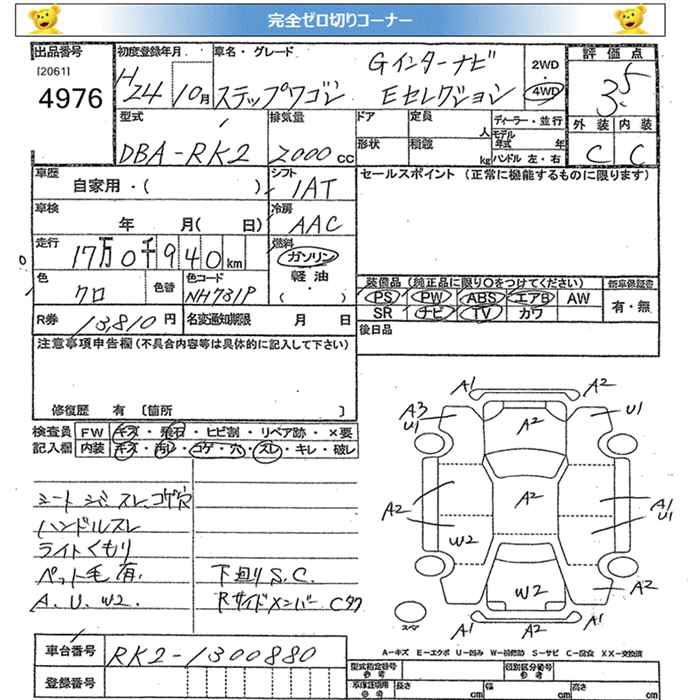 完全ゼロ切りコーナー
出品番号
[2061]
4976
初度登録年月
H24 10月
車名・グレード
Gインターナビ
ステップワゴン Eセレクション
2WD
・
4WD
評価点
3.5
外装 内装
C C
型式
DBA-RK2
排気量
2000cc
ドア 定員 人
形状 積載 kg
ディーラー・並行
モデル年式 年
ハンドル 左・右
車歴
自家用・( )
シフト
IAT
セールスポイント (正常に機能するものに限ります)
車検
年 月( 日)
冷房
AAC
走行
17万0千940km
燃料
ガソリン
軽油
・
( )
色
クロ
色替
色コード
NH731P
装備品 (純正品に限り○をつけてください)
新車保証書
PS PW ABS エアB AW
有・無
SR ナビ TV カワ
R券 13,810円
名変通知期限 月 日
後日品
注意事項申告欄 (不具合内容等は具体的に記入して下さい)
修復歴 有 [箇所 ]
検査員
記入欄
FW キズ・飛石・ヒビ割・リペア跡・×要
内装 キズ・汚レ・コゲ・穴・スレ・キレ・破レ
シート シミ、スレ、コゲ穴
ハンドルスレ
ライトくもり
ペット毛 有.
下廻りS.C.
A.U.W2.
RサイドメンバーCタク
A1 A2
A3 U1
U1
A2
A2
A2
A1 U1
W2
W2
A2
A1 A2
A1
スペア
A-キズ E-エクボ U-凹み W-補修跡 S-サビ C-腐食 XX-交換済
車台番号
RK2-1300880
登録番号
型式指定番号
参考
類別区分番号
参考
車庫証明用
参考
長さ cm
幅 cm
高さ cm